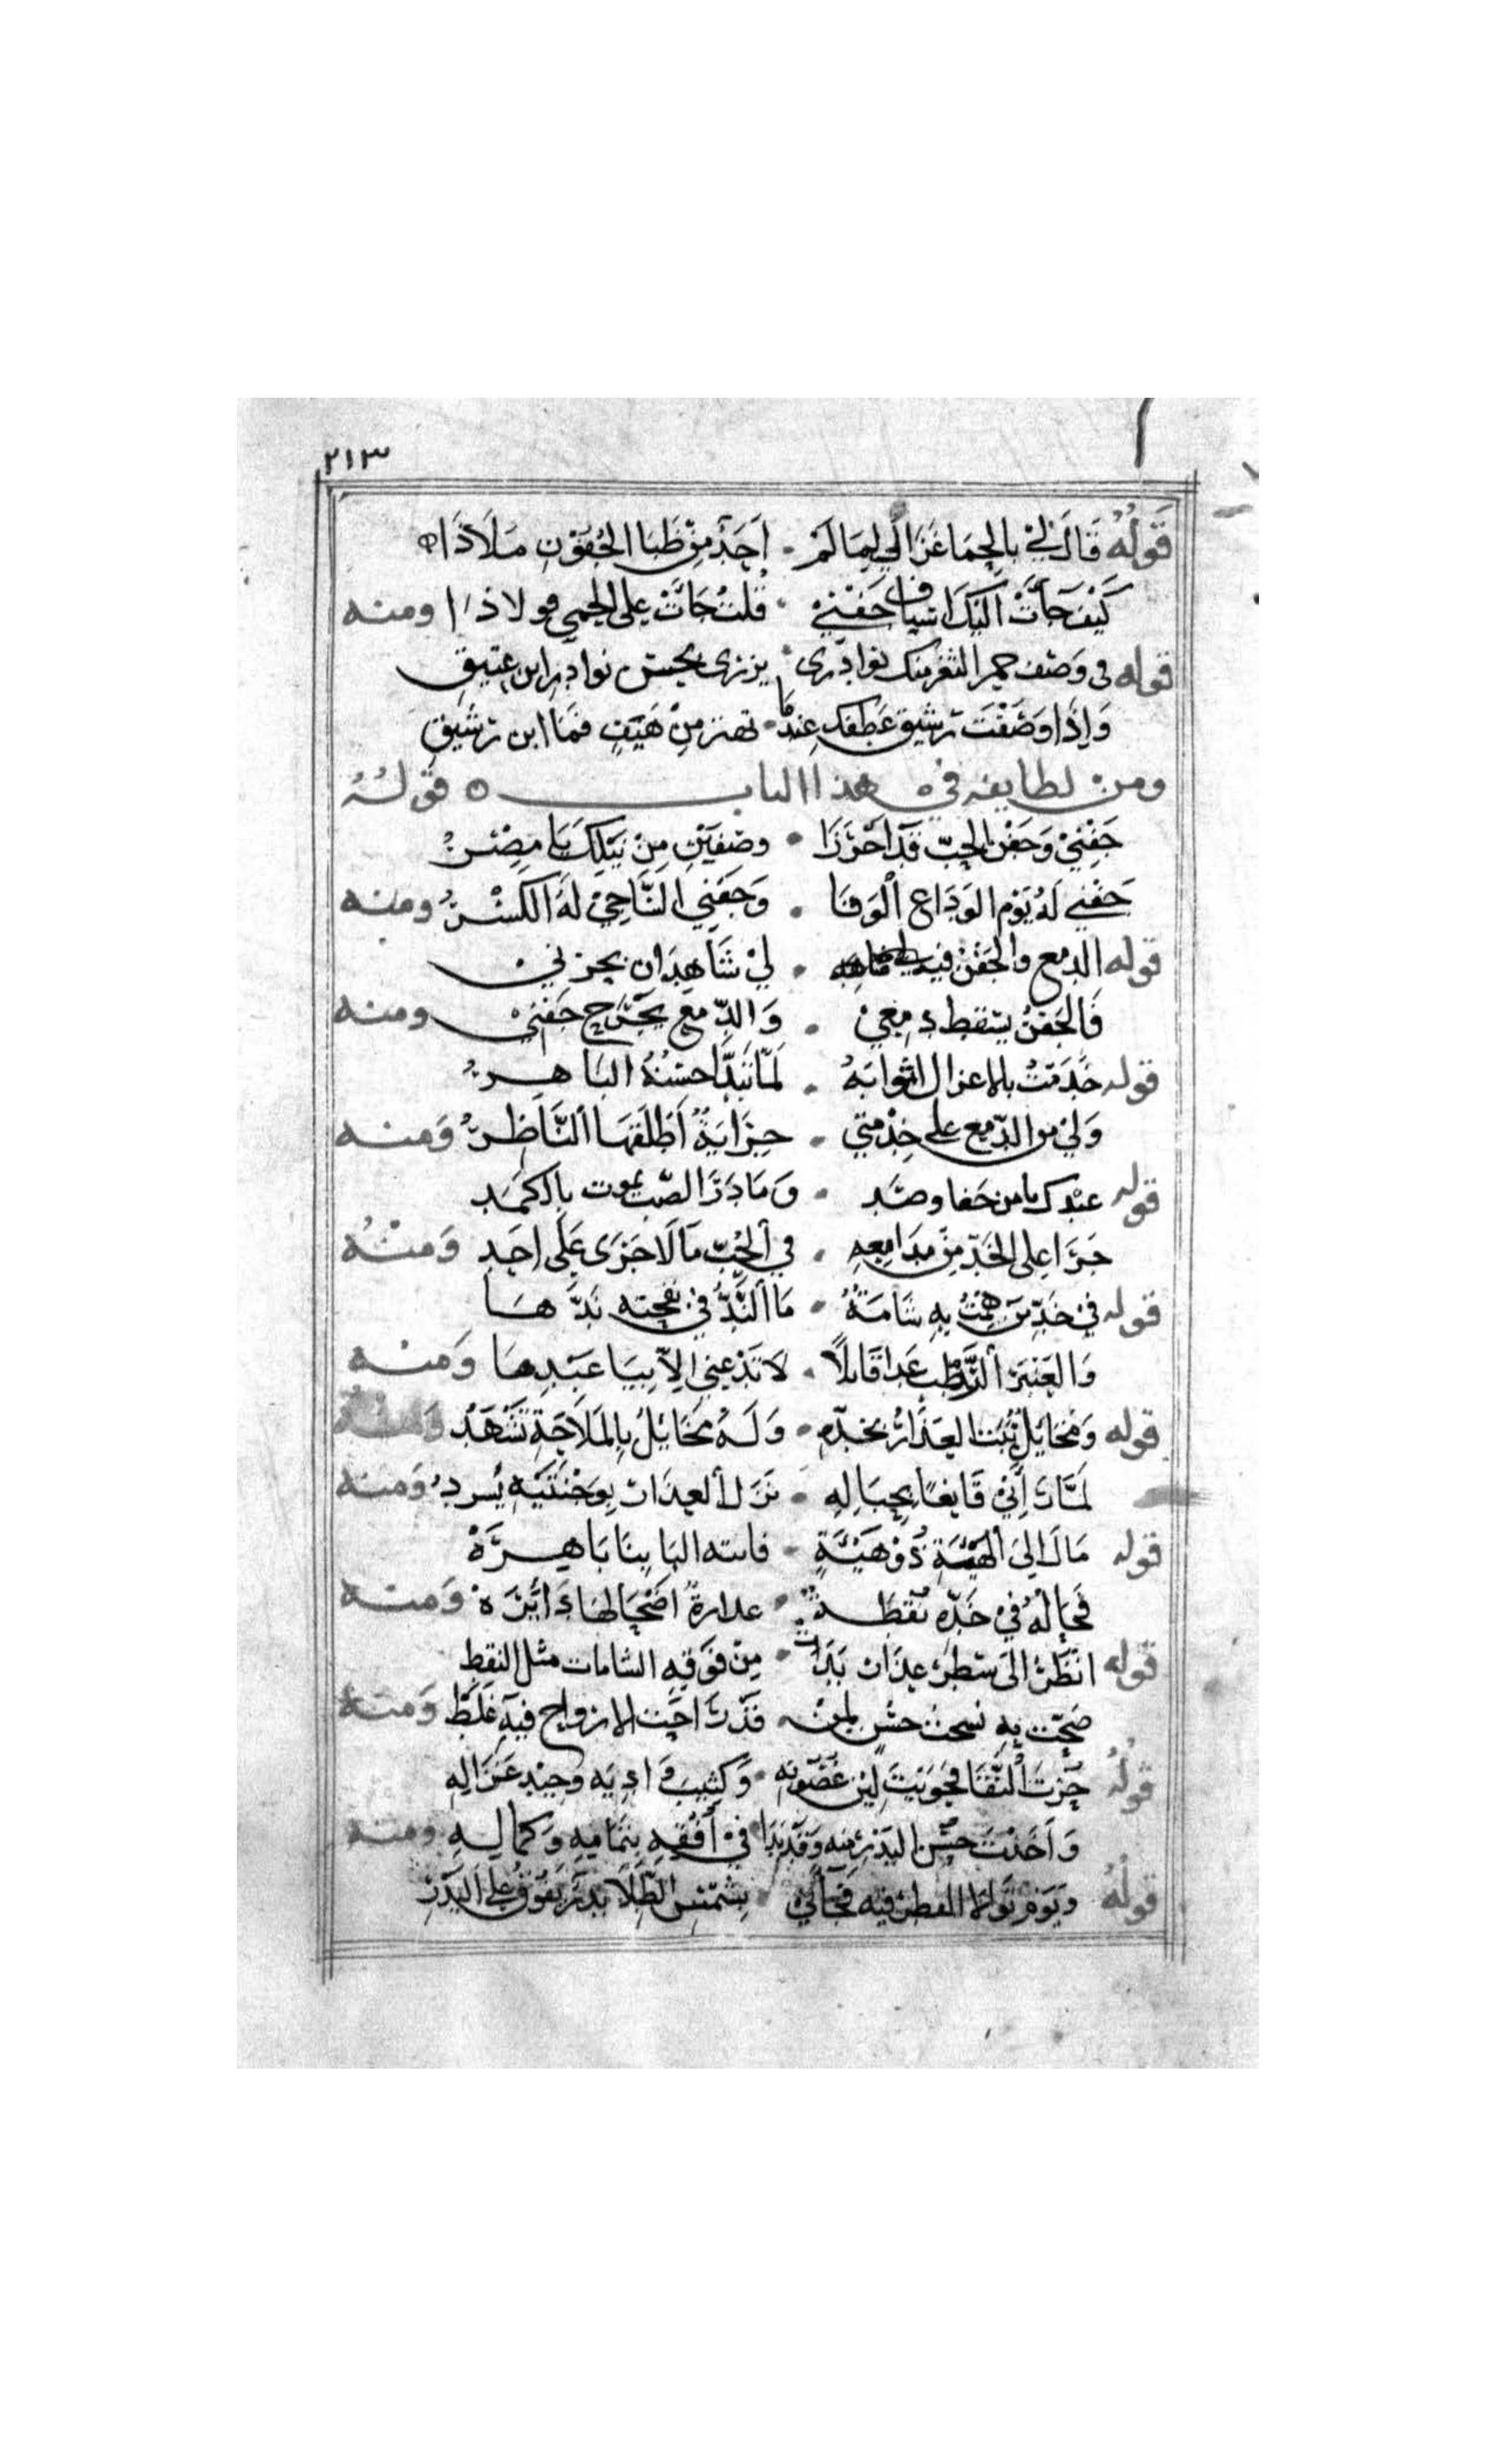 ٢١٣
قَوْلُهُ قَالَ لِيْ بِالحِمَا غَزَالِي لِمَا لَمْ · اَجِدْ مِنْ ظَبَا الجُفُوْنِ مَلَاذَا
كَيْفَ جَآتْ اِلَيْكَ اَسْيَافُ جَفْنِيْ · قُلْتُ جَاتْ على الحمى فولاذا ومنه
قوله في وَصف خمر الثغر منك نوادرى · يزرى بحسن نوادر ابن عتيق
وَاِذَا وَصَفْتَ رشيق عَطفك عِندمَا · تهتز مِنْ هَيَفٍ فمَا ابن رَشيقِ
ومن لطايفه في هذا الباب قَوْلُهُ
جَفْنِيْ وَجَفْن الحِبّ قَدْ اَحْرَزَا · وصْفَيْنِ مِنْ نَيْلِكَ يَا مِصْرُ
جَفْنِي لَهُ يَوْم الوَدَاعِ اَلْوَفَا · وَجَفْنِي السَّاجِيْ لَهُ الكَسْرُ ومنه
قوله الدمع والجَفْنُ فيه · لِيْ شَاهِدَان بحزنى
فَالجَفْنُ ينقط دمْعِيْ · وَالدّمْع يَجْرَح جَفْنِيْ ومنه
قوله خَدَمْتُ بالاعزال ابوابَهُ · لَمّا تَبَدَّا حُسْنُهُ البَاهِرُ
وَلِيْ من الدّمع على خِدْمتي · جِرَايَةٌ اَطْلَقَهَا النَّاظِرُ وَمنه
قوله عبْدك يا من جَفا وصَد · وَمَا دَرَا الصّب يموت بالكَمَد
جَرَا على الخَدّ مِنْ مدَامِعِهِ · فِي اَلحُبّ مَا لَا جَرَى عَلَى اَحَدِ وَمنْهُ
قوله فِي خَدِّ مَنْ هِمْتُ بِهِ شَامَةٌ · مَا النَّدُّ فِي نفحته نَدّهَا
وَالعَنْبَرُ الرّطب غدَا قَايلاً · لا تَدْعُنِي اِلاّ بِيَا عَبْدَهَا وَمنه
قوله وَمُخَايلٌ نَبْتُ العِذَارُ بخدّهِ · وَلَهُ مَخَايلُ بِالمَلَاحَةِ تَشْهَدُ وَمنهُ
لَمّا رَاَنِيْ قَانِعًا بِحِبَالِهِ · نَزَلَ العِذَار بِوَجْنَتَيْهِ يُسرد وَمنه
قوله مَال اِلَىَ الهَيْئَةِ ذُوْ هَيْئَةٍ · فانته البَابِنَا بَاهِرَةْ
فَخَالهُ فِيْ خَدِّهِ نُقْطَةٌ · عذاره اَضْحَا لهَا دَايْرَة وَمنه
قوله انْظُرْ اِلىَ سَطْر عِذَار بَدَا · مِنْ فَوْقِهِ الشامات مثل النقط
صَحّت بِهِ نسخت حسن لمن · قَدْ رَاحَت الارواح فيهِ غَلَطْ وَمنه
قولُهُ حُزْتَ اَلنَّقَا فَحَوَيْتَ لِيْن غُصُوْنِهِ · وَكثيب وَادِيَه وَجيْدِ غَزَالِهِ
وَاَخَذْتَ حُسْن البَدْرِ مِنه وَقَدْ بَدَا · فِيْ اُفقهِ بتمامِهِ وَكمالِهِ ومنه
قولُهُ وَيَوْم تَوَالا القطر فِيه فَجَاَنِي · بِشَمْسِ الطِّلَا بَدْرٌ يَفُوْق على البَدْرِ